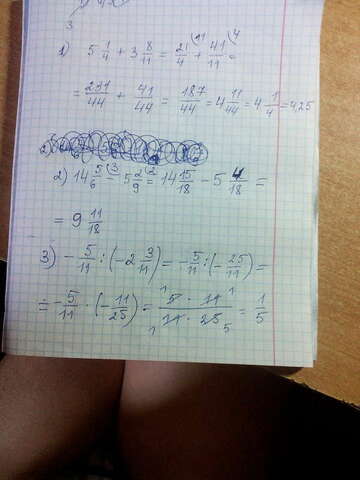 3
1) 5 1/4 + 3 8/11 = 21/4 (11 + 41/11 (4 =
= 231/44 + 41/44 = 187/44 = 4 11/44 = 4 1/4 = 4,25
2) 14 5/6 (3 - 5 2/9 (2 = 14 15/18 - 5 4/18 =
= 9 11/18
3) - 5/11 : (-2 3/11) = - 5/11 : (- 25/11) =
= - 5/11 · (- 11/25) = 5 · 11 / 11 · 25 = 1/5